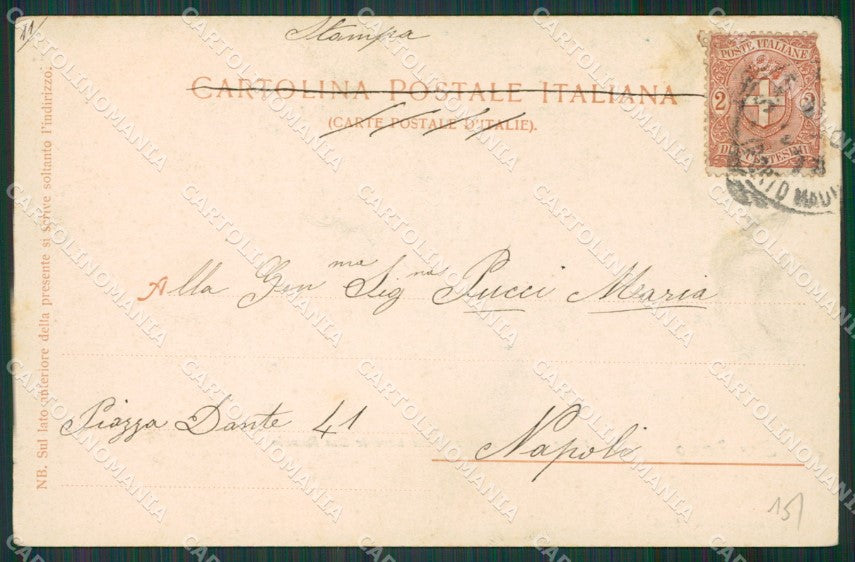 11/
Stampa
CARTOLINA POSTALE ITALIANA
(CARTE POSTALE D'ITALIE).
POSTE ITALIANE
2 2
DUE CENTESIMI
Alla Gen ma Sig na Pucci Maria
Piazza Dante 41
Napoli
15/
NB. Sul lato anteriore della presente si scrive soltanto l'indirizzo.
CARTOLINOMANIA